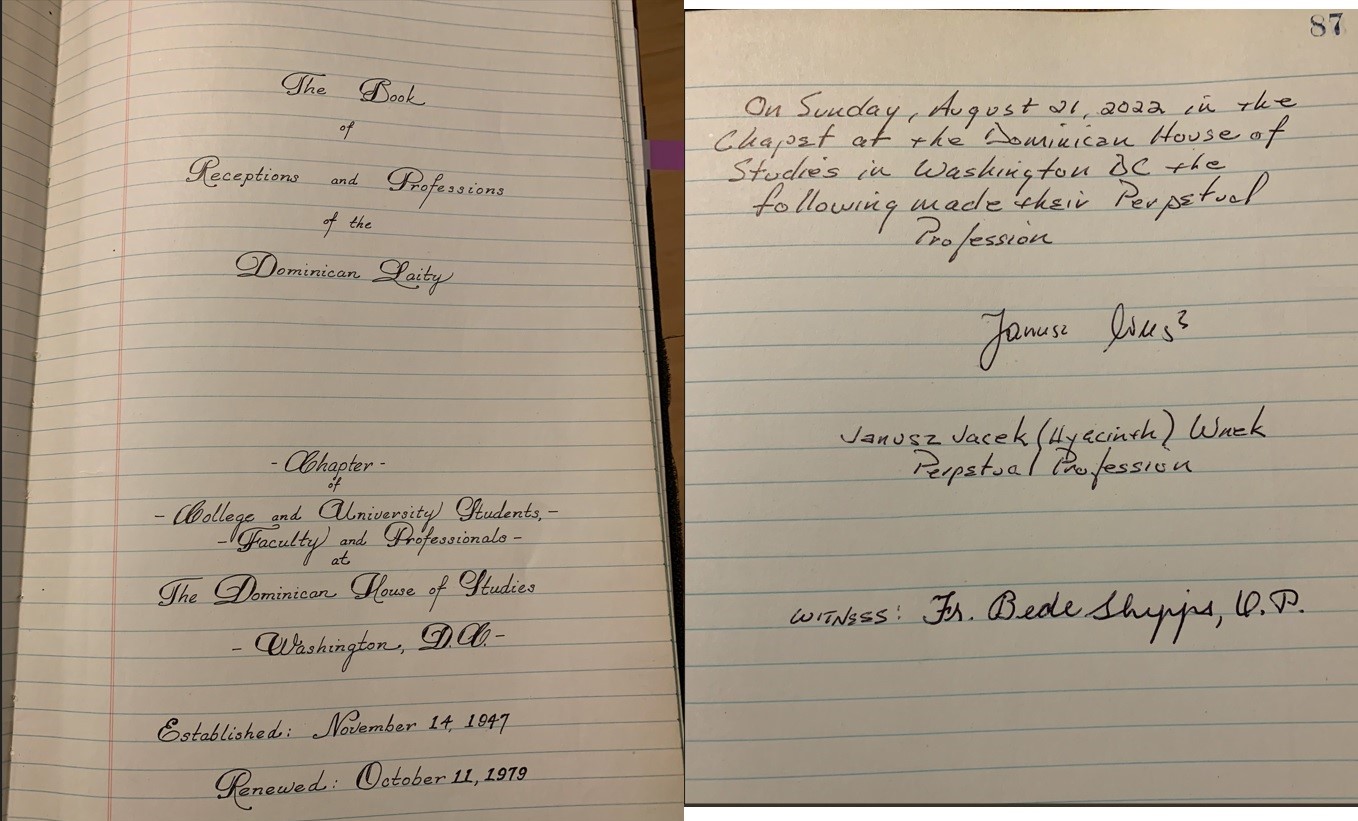 The Book
of
Receptions and Professions
of the
Dominican Laity
- Chapter -
of
- College and University Students, -
- Faculty and Professionals -
at
The Dominican House of Studies
- Washington, D.C. -
Established: November 14, 1947
Renewed: October 11, 1979
87
On Sunday, August 21, 2022 in the
Chapel at the Dominican House of
Studies in Washington DC the
following made their Perpetual
Profession
Janusz
Janusz Jacek (Hyacinth) Wnek
Perpetual Profession
WITNESS: Fr. Bede Shipps, O.P.